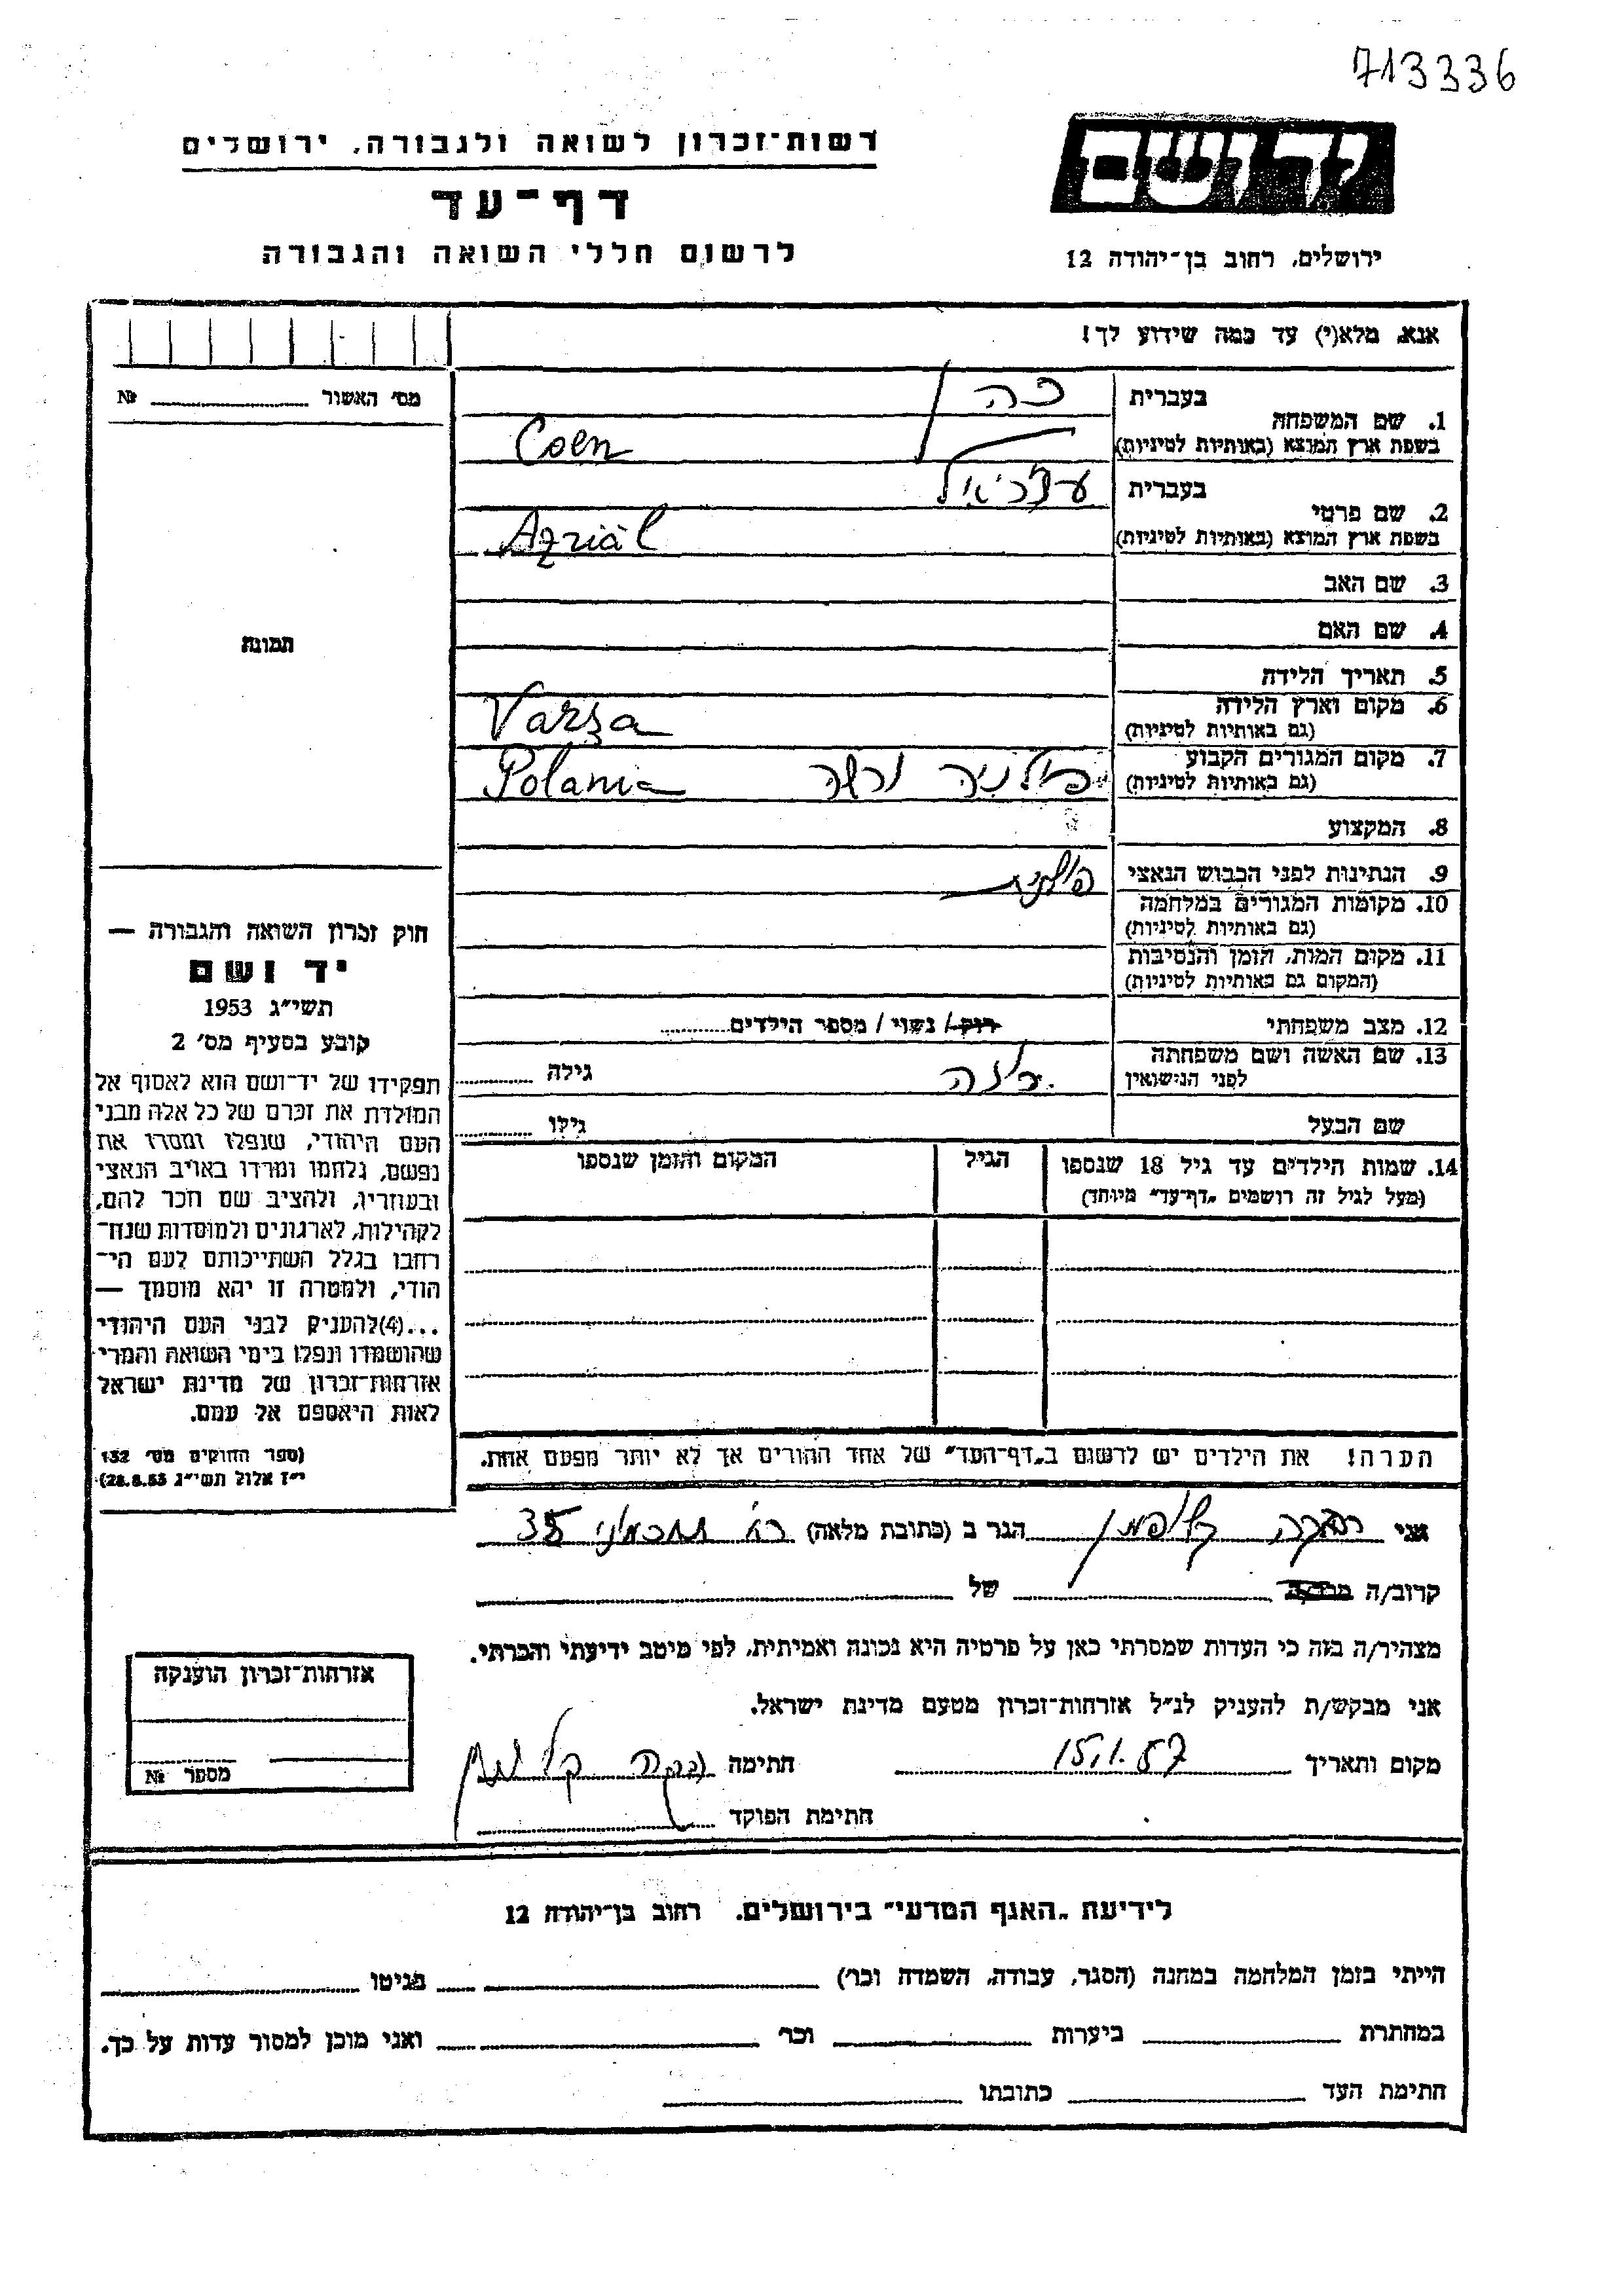 713336
רשות־זכרון לשואה ולגבורה, ירושלים
יד ושם
דף־עד
לרשום חללי השואה והגבורה
ירושלים, רחוב בן־יהודה 12
אנא, מלא(י) עד כמה שידוע לך!
מס׳ האשור № ........
1. שם המשפחה
בעברית כהן
בשפת ארץ המוצא (באותיות לטיניות) Coen
2. שם פרטי
בעברית עזריאל
בשפת ארץ המוצא (באותיות לטיניות) Azriäl
3. שם האב
4. שם האם
5. תאריך הלידה
6. מקום וארץ הלידה
(גם באותיות לטיניות) Varsza
7. מקום המגורים הקבוע
(גם באותיות לטיניות) פולניה ורשה Polania
8. המקצוע
9. הנתינות לפני הכבוש הנאצי פולנית
10. מקומות המגורים במלחמה
(גם באותיות לטיניות)
11. מקום המות, הזמן והנסיבות
(המקום גם באותיות לטיניות)
12. מצב משפחתי רוק / נשוי / מספר הילדים........
13. שם האשה ושם משפחתה
לפני הנישואין גילה ........
שם הבעל גילו ........
14. שמות הילדים עד גיל 18 שנספו הגיל המקום והזמן שנספו
(מעל לגיל זה רושמים „דף־עד” מיוחד)
הערה! את הילדים יש לרשום ב„דף־העד” של אחד ההורים אך לא יותר מפעם אחת.
תמונה
חוק זכרון השואה והגבורה —
יד ושם
תשי״ג 1953
קובע בסעיף מס׳ 2
תפקידו של יד־ושם הוא לאסוף אל
המולדת את זכרם של כל אלה מבני
העם היהודי, שנפלו ומסרו את
נפשם, נלחמו ומרדו באויב הנאצי
ובעוזריו, ולהציב שם וזכר להם,
לקהילות, לארגונים ולמוסדות שנח־
רבו בגלל השתייכותם לעם הי־
הודי, ולמטרה זו יהא מוסמך —
...(4)להעניק לבני העם היהודי
שהושמדו ונפלו בימי השואה והמרי
אזרחות־זכרון של מדינת ישראל
לאות היאספם אל עמם.
(ספר החוקים מס׳ 132
י״ז אלול תשי״ג 28.8.53)
אני רבקה קליפמן הגר ב (כתובת מלאה) 35
קרוב/ה מכר/ה של
מצהיר/ה בזה כי העדות שמסרתי כאן על פרטיה היא נכונה ואמיתית, לפי מיטב ידיעתי והכרתי.
אני מבקש/ת להעניק לנ״ל אזרחות־זכרון מטעם מדינת ישראל.
מקום ותאריך 15.1.57 חתימה רבקה קליפמן
חתימת הפוקד
אזרחות־זכרון הוענקה
מספר №
לידיעת „האגף המדעי” בירושלים, רחוב בן־יהודה 12
הייתי בזמן המלחמה במחנה (הסגר, עבודה, השמדה וכו׳) בגיטו
במחתרת ביערות וכו׳ ואני מוכן למסור עדות על כך.
חתימת העד כתובתו